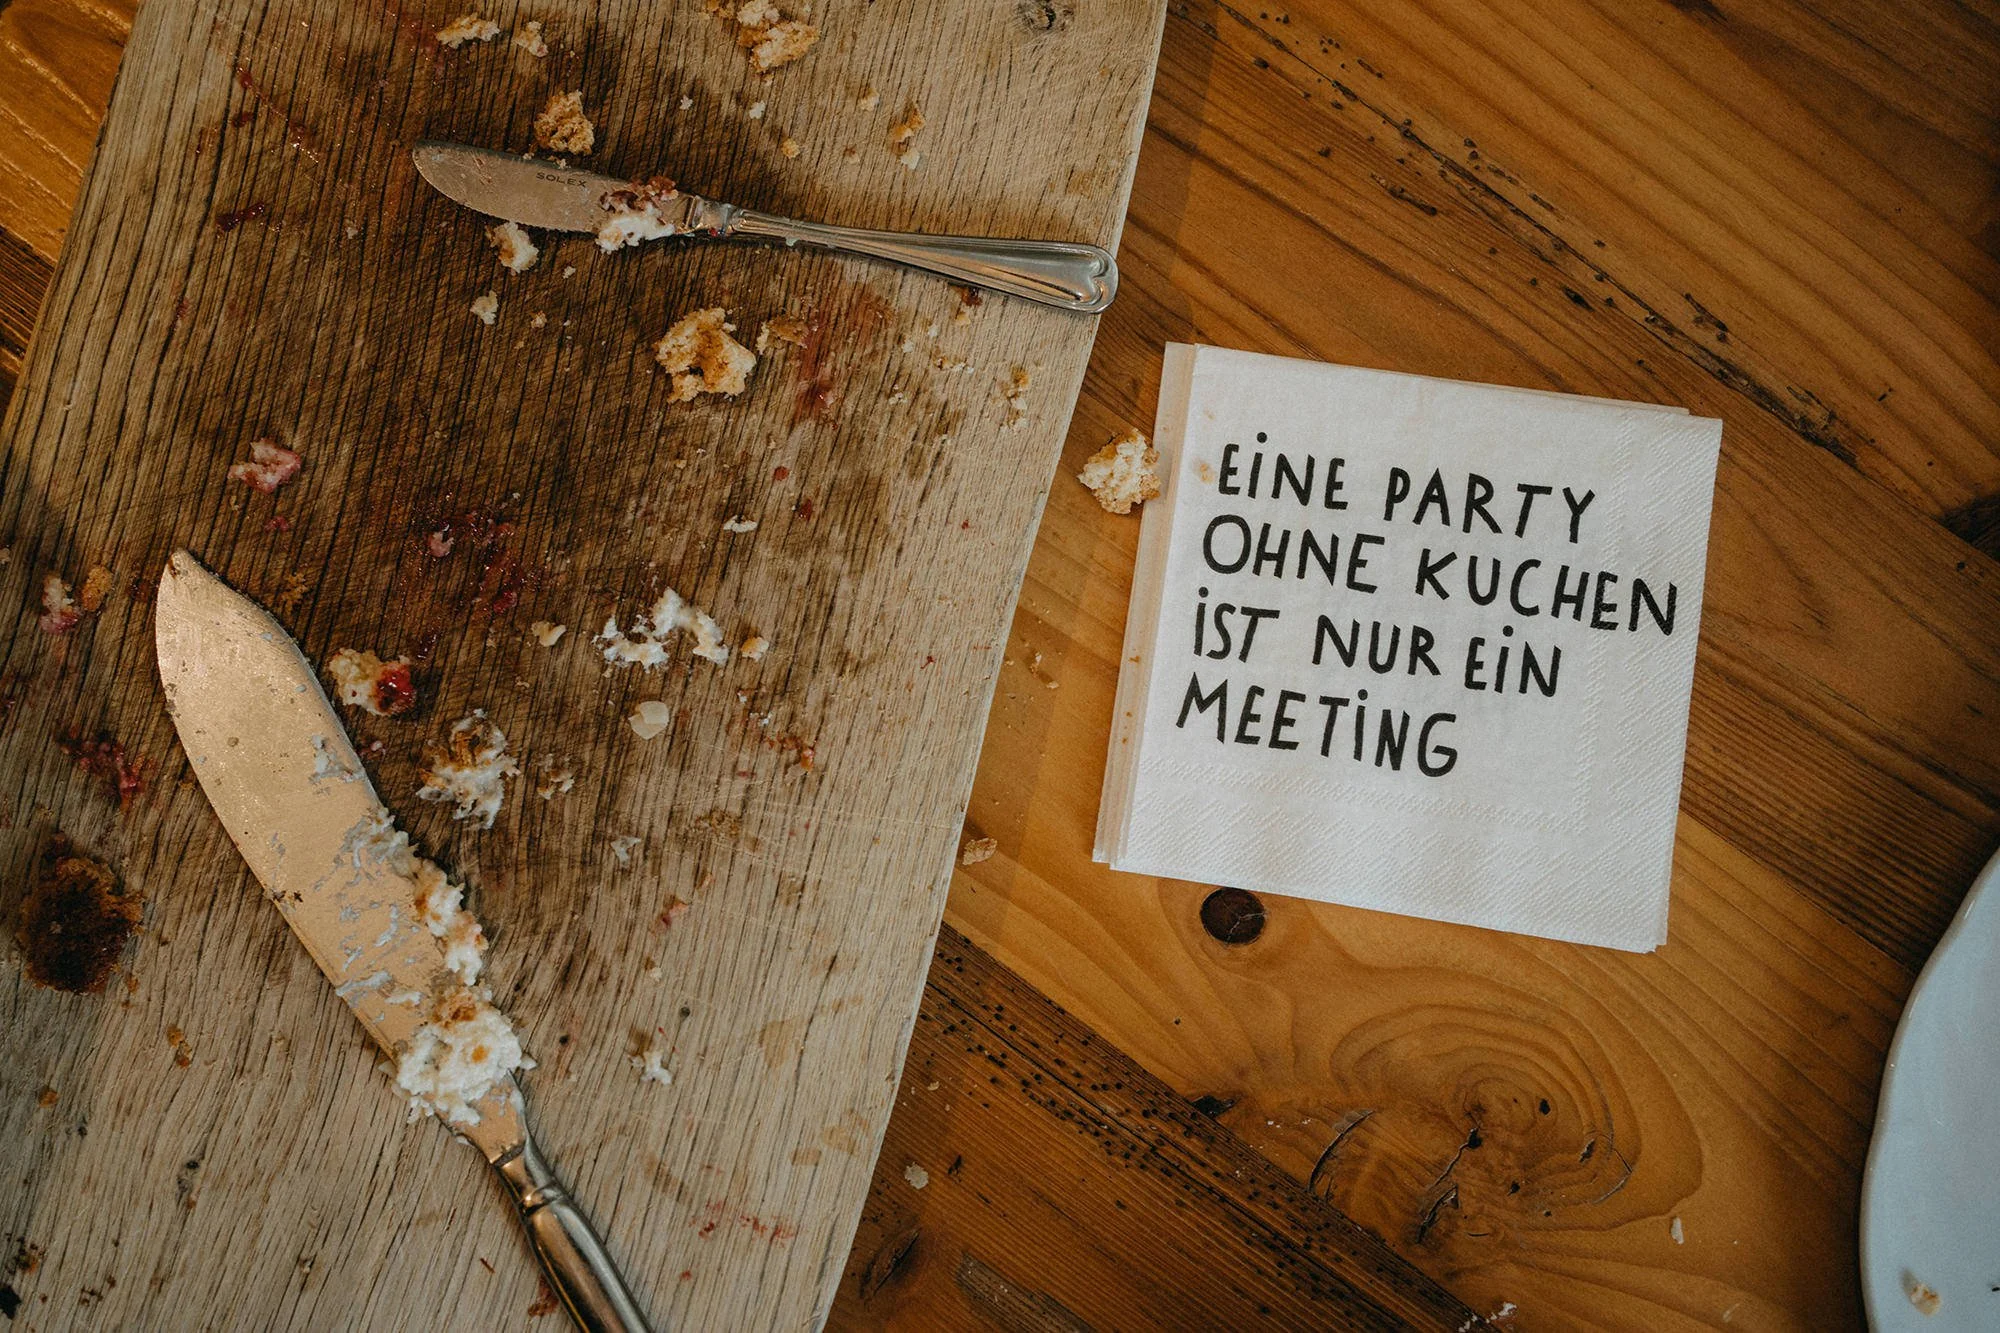 SOLEX
EiNE PARTY
OHNE KUCHEN
iST NUR EiN
MEETiNG